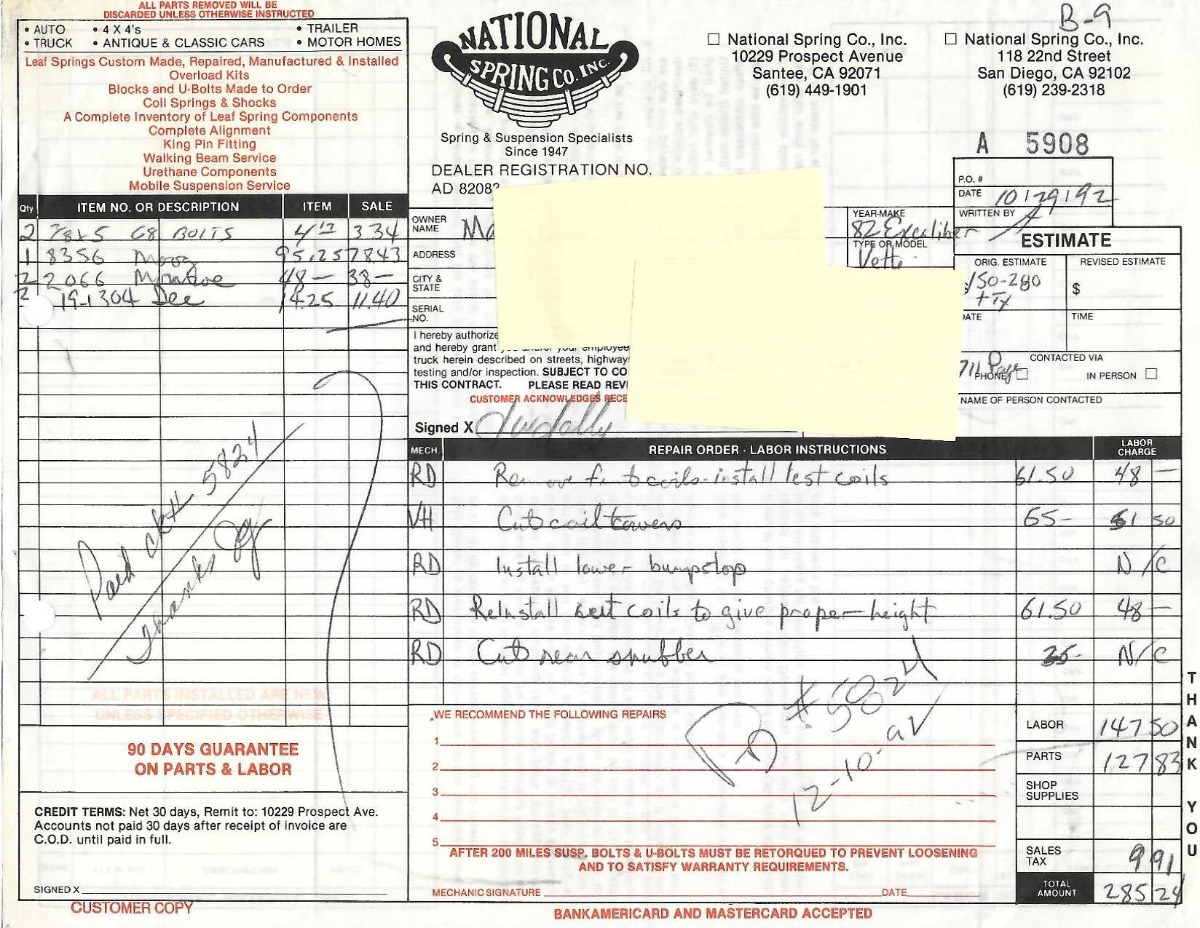 ALL PARTS REMOVED WILL BE
DISCARDED UNLESS OTHERWISE INSTRUCTED
• AUTO • 4 X 4's • TRAILER
• TRUCK • ANTIQUE & CLASSIC CARS • MOTOR HOMES
Leaf Springs Custom Made, Repaired, Manufactured & Installed
Overload Kits
Blocks and U-Bolts Made to Order
Coil Springs & Shocks
A Complete Inventory of Leaf Spring Components
Complete Alignment
King Pin Fitting
Walking Beam Service
Urethane Components
Mobile Suspension Service
NATIONAL
SPRING CO. INC.
Spring & Suspension Specialists
Since 1947
DEALER REGISTRATION NO.
AD 82082
B-9
☐ National Spring Co., Inc.
10229 Prospect Avenue
Santee, CA 92071
(619) 449-1901
☐ National Spring Co., Inc.
118 22nd Street
San Diego, CA 92102
(619) 239-2318
A 5908
P.O. #
DATE 10/29/92
WRITTEN BY
Qty ITEM NO. OR DESCRIPTION ITEM SALE
2 78x5 G8 BOLTS 4 12 3.34
1 8356 Moog 95.25 78.43
2 2066 Monroe 48— 38—
2 19-1304 Dee 14.25 11.40
OWNER NAME Ma
ADDRESS
CITY & STATE
SERIAL NO.
YEAR-MAKE
82 Excaliber
TYPE OR MODEL
Vette
ESTIMATE
ORIG. ESTIMATE REVISED ESTIMATE
$150-280 $
+Tx
DATE TIME
CONTACTED VIA
PHONE ☐ IN PERSON ☐
NAME OF PERSON CONTACTED
I hereby authorize
and hereby grant you and/or your employee
truck herein described on streets, highway
testing and/or inspection. SUBJECT TO CO
THIS CONTRACT. PLEASE READ REV
CUSTOMER ACKNOWLEDGES RECE
Signed X
MECH. REPAIR ORDER - LABOR INSTRUCTIONS LABOR CHARGE
RD Remove frnt coils-install test coils 61.50 48 —
VH Cut coil towers 65- 51 50
RD Install lower bumpstop N/C
RD Reinstall coils to give proper height 61.50 48 —
RD Cut rear snubber 35- N/C
Paid ck# 5824
Thanks
ALL PARTS INSTALLED ARE NEW
UNLESS SPECIFIED OTHERWISE
90 DAYS GUARANTEE
ON PARTS & LABOR
CREDIT TERMS: Net 30 days, Remit to: 10229 Prospect Ave.
Accounts not paid 30 days after receipt of invoice are
C.O.D. until paid in full.
SIGNED X
CUSTOMER COPY
WE RECOMMEND THE FOLLOWING REPAIRS
1
2
3
4
5
PD #5824
12-10-92
AFTER 200 MILES SUSP. BOLTS & U-BOLTS MUST BE RETORQUED TO PREVENT LOOSENING
AND TO SATISFY WARRANTY REQUIREMENTS.
MECHANIC SIGNATURE DATE
BANKAMERICARD AND MASTERCARD ACCEPTED
LABOR 147 50
PARTS 127 83
SHOP SUPPLIES
SALES TAX 9 91
TOTAL AMOUNT 285 24
THANK YOU